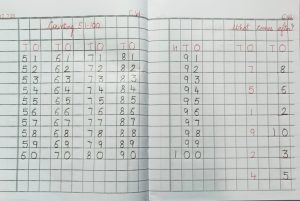 C.W
Counting 51-100
T O T O T O T O
5 1 6 1 7 1 8 1
5 2 6 2 7 2 8 2
5 3 6 3 7 3 8 3
5 4 6 4 7 4 8 4
5 5 6 5 7 5 8 5
5 6 6 6 7 6 8 6
5 7 6 7 7 7 8 7
5 8 6 8 7 8 8 8
5 9 6 9 7 9 8 9
6 0 7 0 8 0 9 0
H T O
9 1
9 2
9 3
9 4
9 5
9 6
9 7
9 8
9 9
1 0 0
C.W
What comes after?
T O T O
7 8
5 6
1 2
9 1 0
2 3
4 5